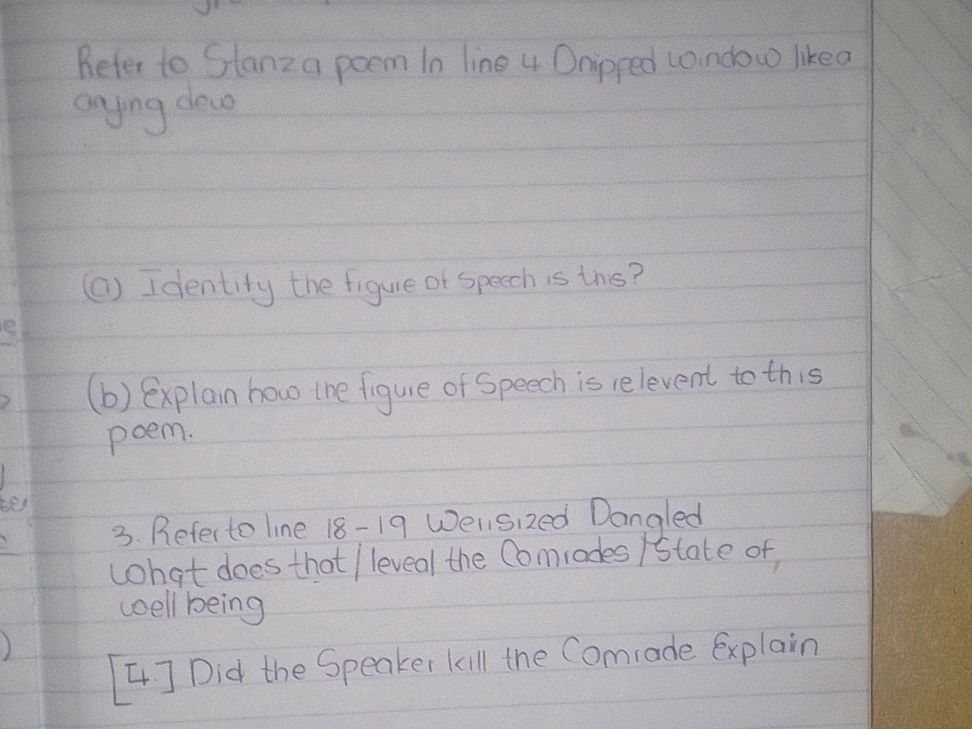 Refer to Stanza poem In line 4 Dripped window like a
drying dew
(a) Identity the figure of Speech is this?
(b) Explain how the figure of Speech is relevent to this
poem.
3. Refer to line 18-19 Dangled
What does that / leveal the Comrades / State of
well being
[4.] Did the Speaker kill the Comrade Explain